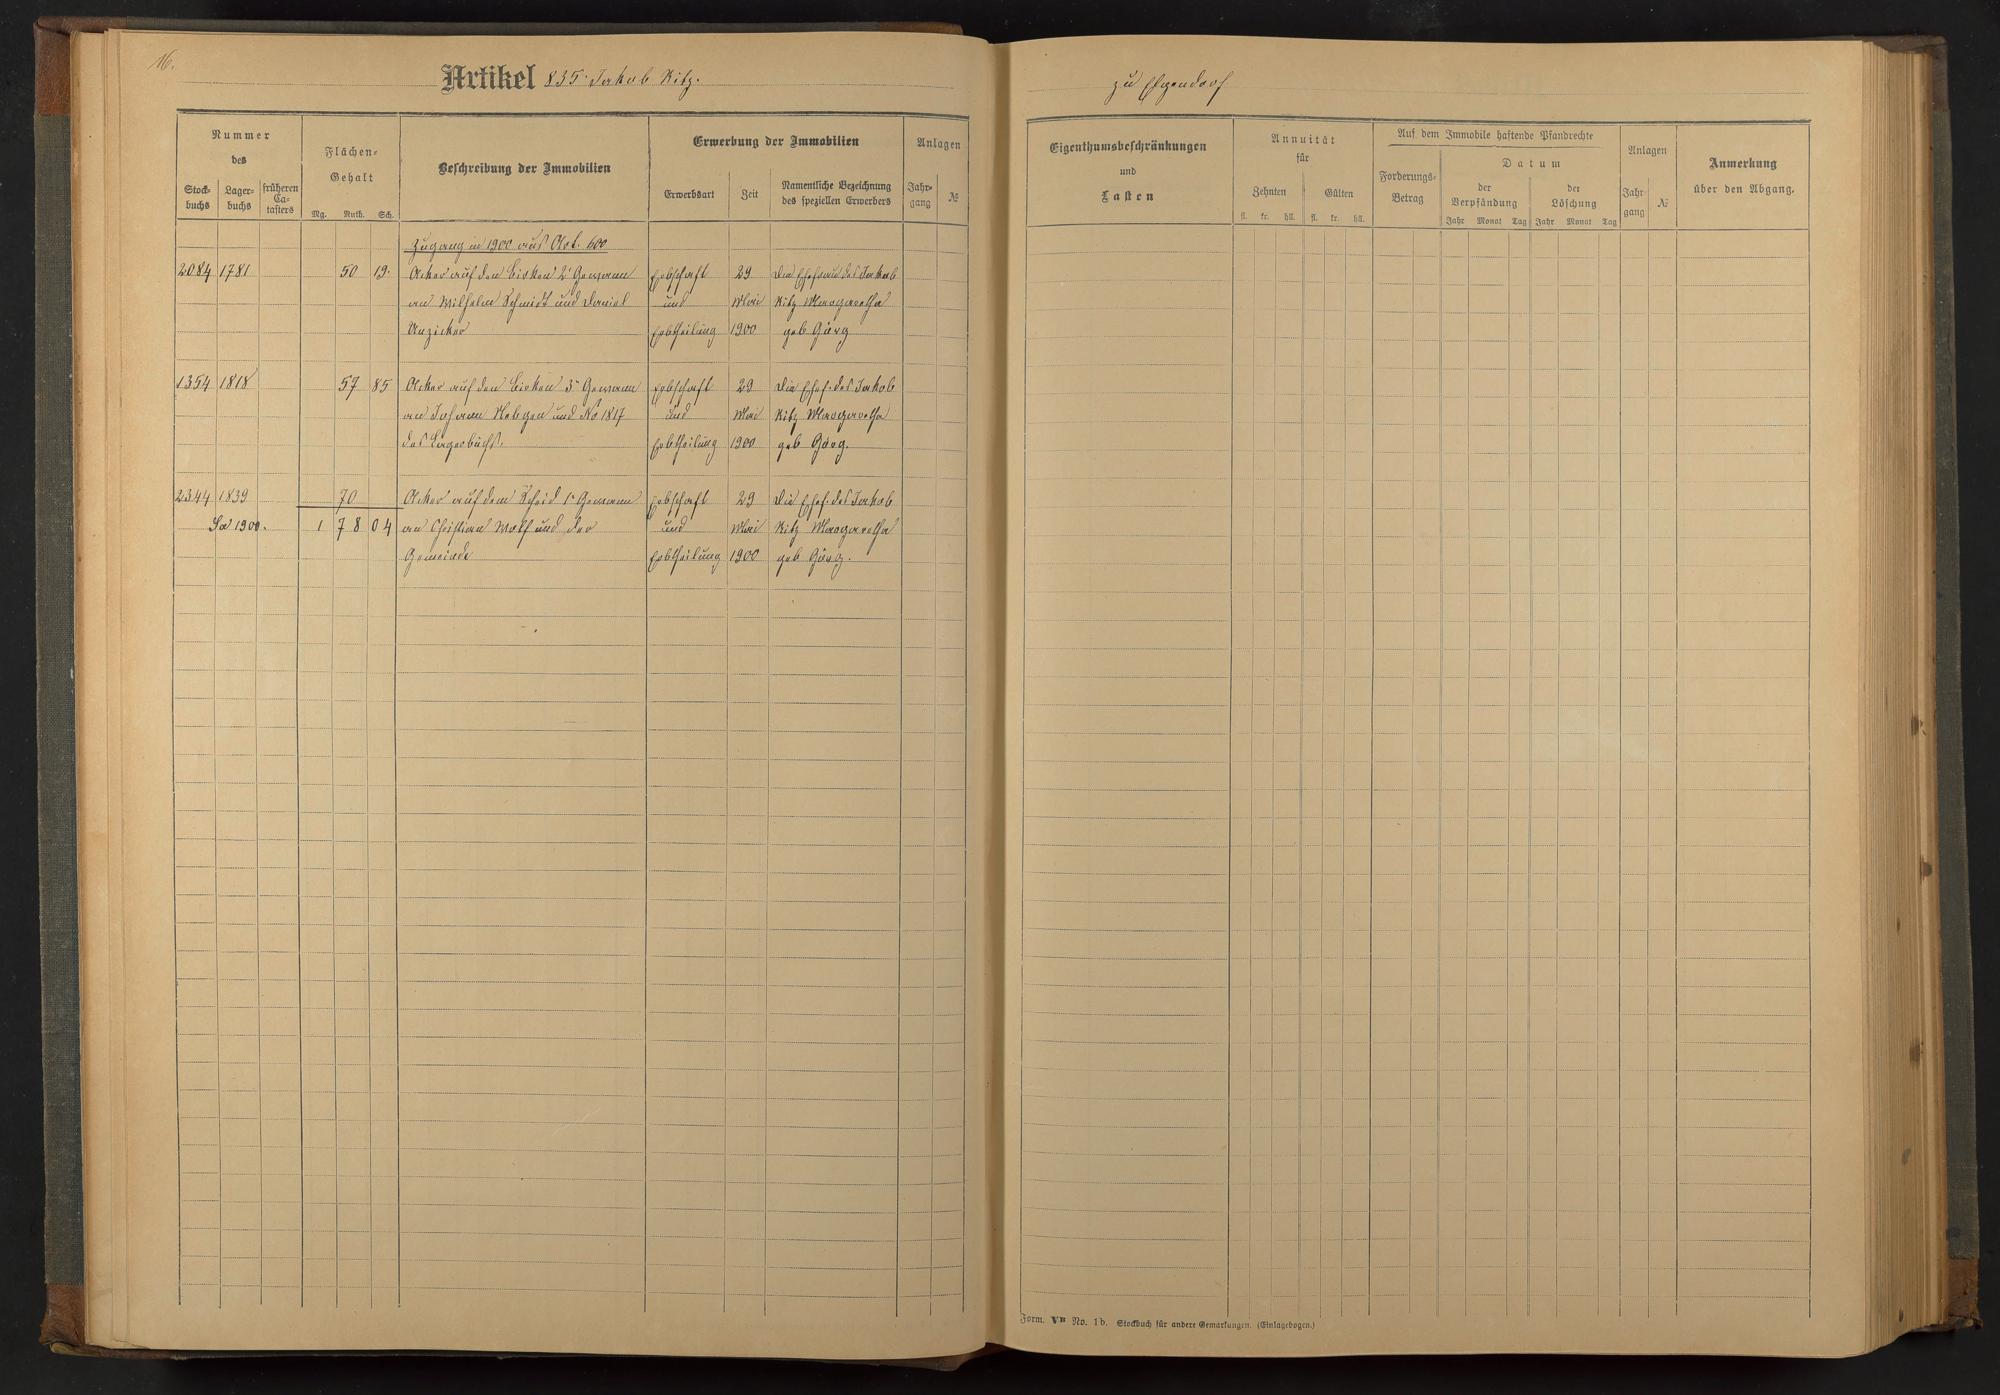 16.
Artikel 835. Jakob Kitz.
zu Elgendorf
Nummer
des
Stock-
buchs
Lager-
buchs
früheren
Ca-
tasters
Flächen-
Gehalt
Mg. Ruth. Sch.
Beschreibung der Immobilien
Erwerbung der Immobilien
Erwerbsart
Zeit
Namentliche Bezeichnung
des speziellen Erwerbers
Anlagen
Jahr-
gang
№
Zugang in 1900 aus Art. 600
2084 1781 50 19. Acker auf den Birken 2r Gewann Erbschaft 29 Die Ehefrau des Jakob
an Wilhelm Schmidt und Daniel und Mai Kitz Margaretha
Unzicker Erbtheilung 1900 geb Görg
1354 1818 57 85 Acker auf den Birken 3r Gewann Erbschaft 29 Die Ehef. des Jakob
an Johann Hebgen und No 1817 und Mai Kitz Margaretha
des Lagerbuchs. Erbtheilung 1900 geb Görg.
2344 1839 70 Acker auf dem Scheid 1r Gewann Erbschaft 29 Die Ehef. des Jakob
Sa 1900. 1 78 04 an Christian Wolf und der und Mai Kitz Margaretha
Gemeinde Erbtheilung 1900 geb Görg.
Eigenthumsbeschränkungen
und
Lasten
Annuität
für
Zehnten
Gülten
fl. kr. hll. fl. kr. hll.
Auf dem Immobile haftende Pfandrechte
Forderungs-
Betrag
Datum
der
Verpfändung
Jahr Monat Tag
der
Löschung
Jahr Monat Tag
Anlagen
Jahr-
gang
№
Anmerkung
über den Abgang.
Form. VB No. 1b. Stockbuch für andere Gemarkungen. (Einlagebogen.)